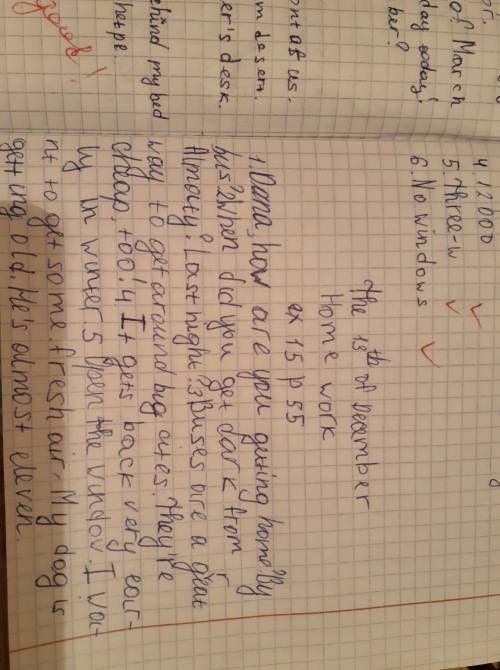 of March
day today?
ber?
ont at us.
m desert.
er's desk.
behind my bed
good!
4. 12000
5. Three-w
6. No windows
The 13th of December
Home work
ex 15 p 55
1. Dana, how are you getting home? By
bus? 2 When did you get dark from
Almaty? Last night? 3 Buses are a great
way to get around big cities. They're
cheap, too! 4 It gets back very ear-
ly in winter. 5 Open the vindov. I va-
nt to get some fresh air. My dog is
getting old. He's almost eleven.